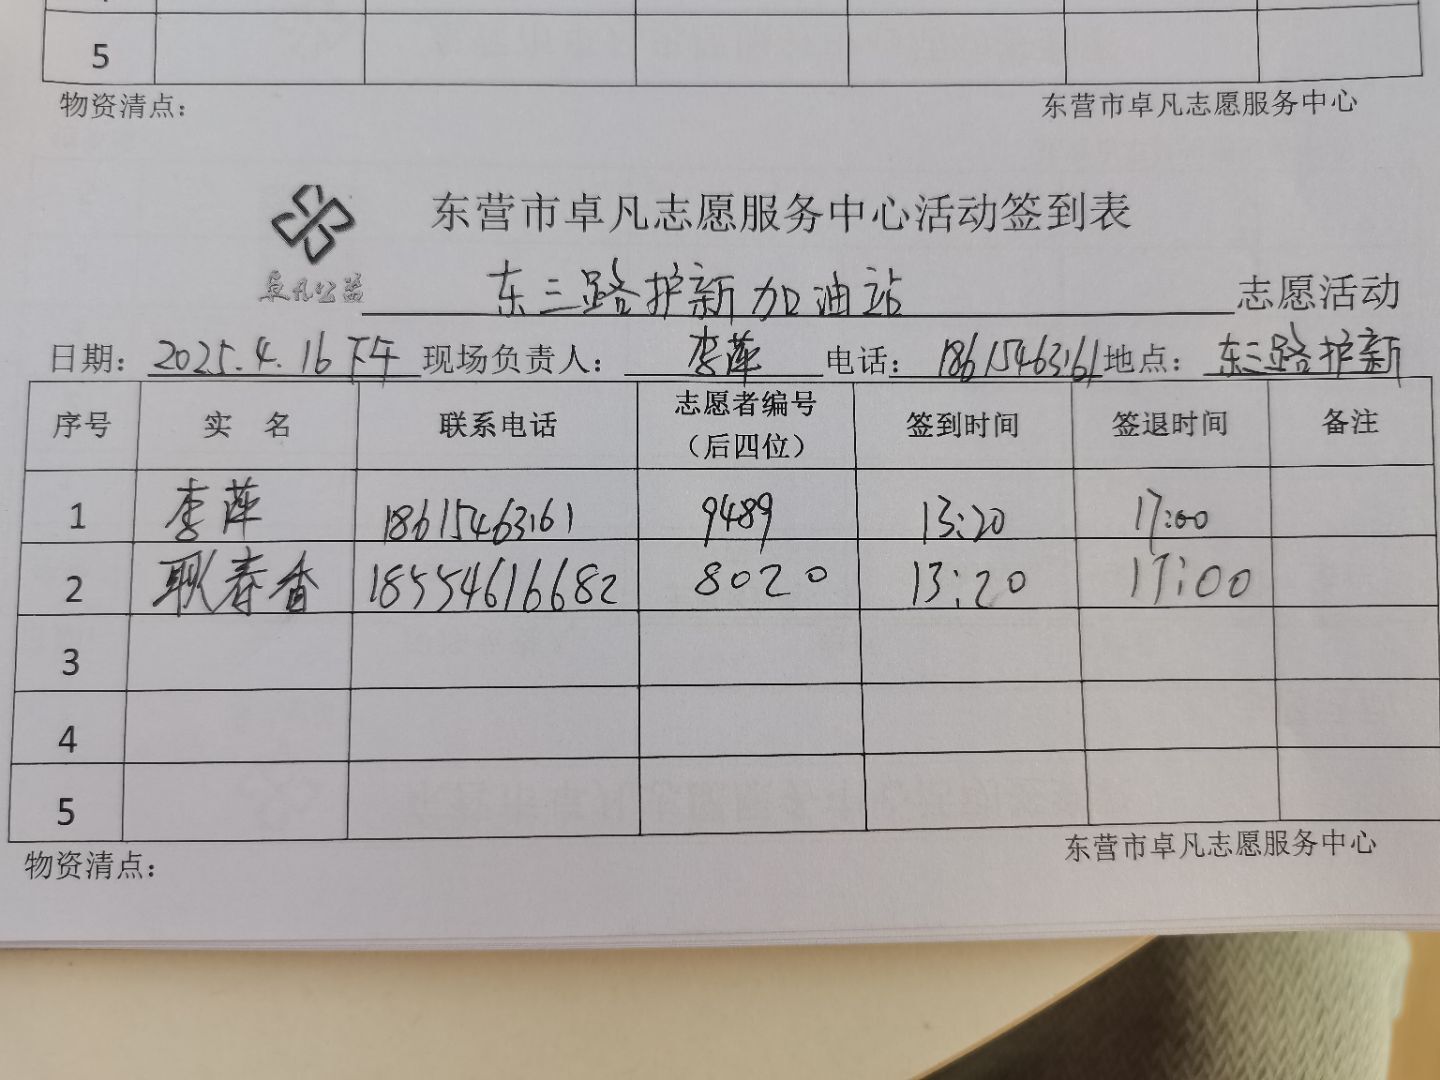 5
物资清点：
东营市卓凡志愿服务中心
东营市卓凡志愿服务中心活动签到表
卓凡公益
东三路护新加油站 志愿活动
日期：2025.4.16下午 现场负责人：李萍 电话：18615463161 地点：东三路护新
序号 实 名 联系电话 志愿者编号（后四位） 签到时间 签退时间 备注
1 李萍 18615463161 9489 13:20 17:00
2 耿春香 18554616682 8020 13:20 17:00
3
4
5
物资清点：
东营市卓凡志愿服务中心